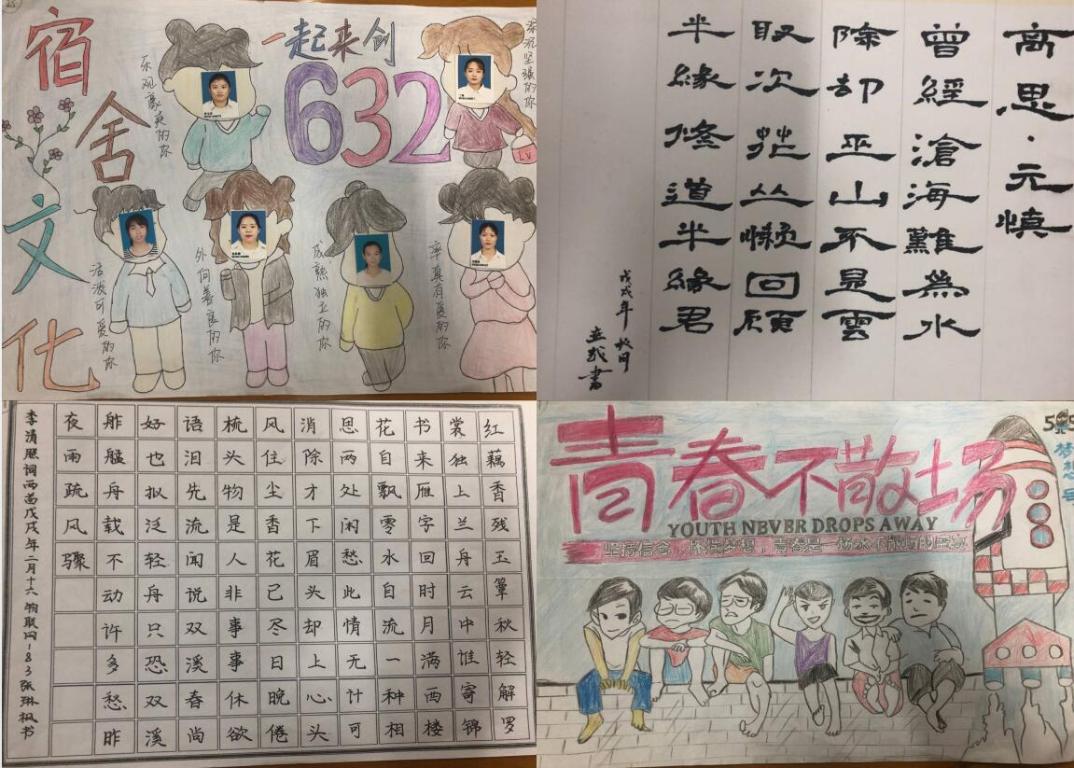 宿舍文化
一起来创
632
乐观豪爽的你
坚强的你
活泼可爱的你
外向善良的你
成熟独立的你
率真有爱的你
LV
离思·元慎
曾經滄海難爲水
除却巫山不是雲
取次花丛懒回顾
半緣修道半緣君
戊戌年
書
红藕香残玉簟秋轻解罗
裳独上兰舟云中谁寄锦
书来雁字回时月满西楼
花自飘零水自流一种相
思两处闲愁此情无计可
消除才下眉头却上心头
风住尘香花已尽日晚倦
梳头物是人非事事休欲
语泪先流闻说双溪春尚
好也拟泛轻舟只恐双溪
舴艋舟载不动许多愁昨
夜雨疏风骤
李清照词两首戊戌年二月十六 物联网-183张琳枫书
青春不散场
YOUTH NEVER DROPS AWAY
青春是一场永不散场的
梦想号